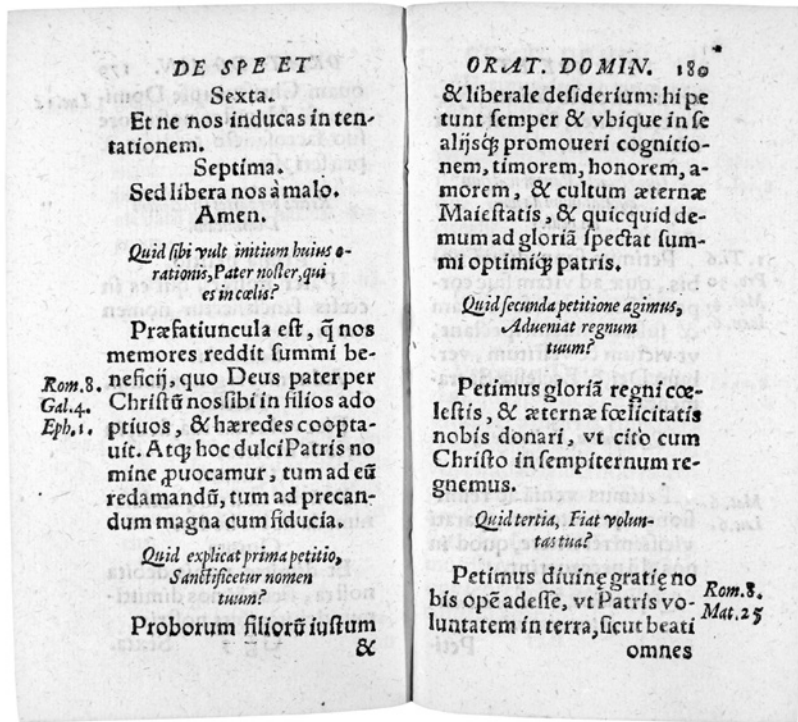 DE SPE ET
Sexta.
Et ne nos inducas in ten-
tationem.
Septima.
Sed libera nos à malo.
Amen.
Quid sibi vult initium huius o-
rationis, Pater noster, qui
es in cœlis?
Præfatiuncula est, q̃ nos
memores reddit summi be-
Rom.8. neficij, quo Deus pater per
Gal.4. Christū nos sibi in filios ado
Eph.1. ptiuos, & hæredes coopta-
uit. Atq; hoc dulci Patris no
mine ꝓuocamur, tum ad eū
redamandū, tum ad precan-
dum magna cum fiducia.
Quid explicat prima petitio,
Sanctificetur nomen
tuum?
Proborum filiorū iustum
&
ORAT. DOMIN. 180
& liberale desiderium: hi pe
tunt semper & vbique in se
alijsq; promoueri cognitio-
nem, timorem, honorem, a-
morem, & cultum æternæ
Maiestatis, & quicquid de-
mum ad gloriā spectat sum-
mi optimiq; patris.
Quid secunda petitione agimus,
Adueniat regnum
tuum?
Petimus gloriā regni cœ-
lestis, & æternæ fœlicitatis
nobis donari, vt citò cum
Christo in sempiternum re-
gnemus.
Quid tertia, Fiat volun-
tas tua?
Petimus diuinę gratię no
bis opē adesse, vt Patris vo- Rom.8.
luntatem in terra, sicut beati Mat.25
omnes